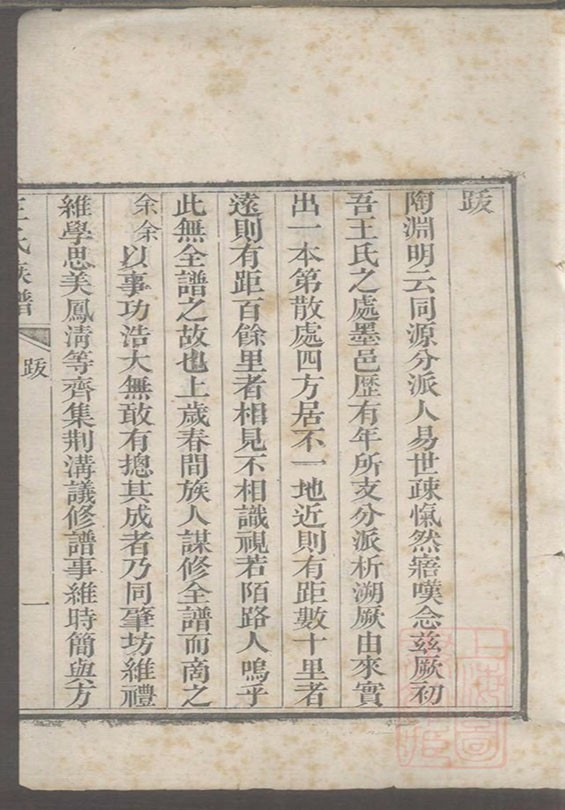 跋
陶淵明云同源分派人易世疎愾然寤嘆念兹厥初
吾王氏之處墨邑歷有年所支分派析溯厥由來實
出一本第散處四方居不一地近則有距數十里者
遠則有距百餘里者相見不相識視若陌路人嗚乎
此無全譜之故也上歲春間族人謀修全譜而商之
余余以事功浩大無敢有摠其成者乃同肇坊維禮
維學思美鳳清等齊集荆溝議修譜事維時簡與方
王氏族譜
跋
一